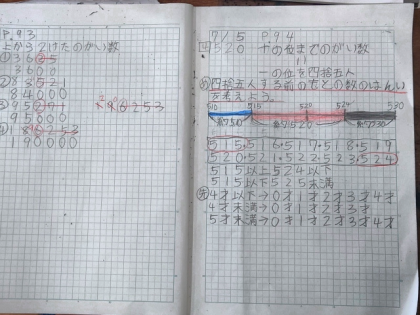 P.93
上から2けたのがい数
①3625
3600
②83521
84000
③95271
95000
④186253
190000
7/5 P.94
520 十の位までのがい数
一の位を四捨五入
め 四捨五入する前のもとの数のはんい
を考えよう。
510 515 520 524 530
約520
約530
515・516・517・518・519
520・521・522・523・524
515以上524以下
515以上525未満
4才以下→0才1才2才3才4才
4才未満→0才1才2才3才
5才未満→0才1才2才3才4才